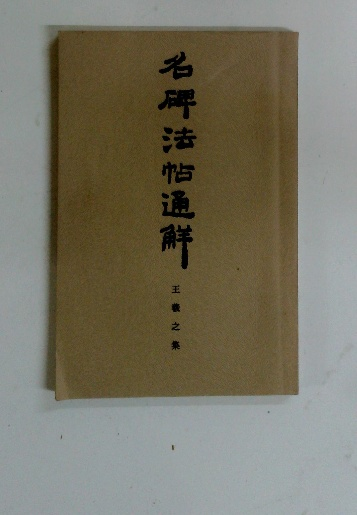 名碑法帖通解
王羲之集